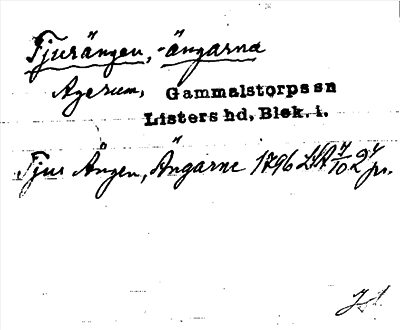 Tjurängen, -ängarna
Agerum, Gammalstorps sn
Listers hd, Blek. l.
Tjur Ängen, Ängarne 1796 LSA 7/10 24 pr.